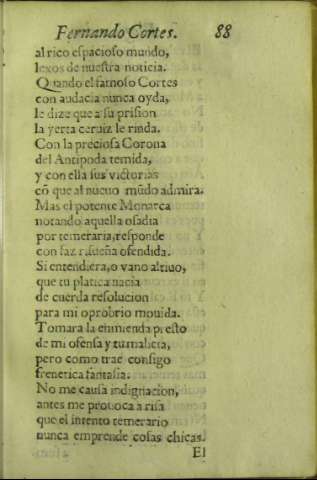 Fernando Cortes. 88
al rico espacioso mundo,
lexos de nuestra noticia.
Quando el famoso Cortes
con audacia nunca oyda,
le dize que a su prision
la yerta ceruiz le rinda.
Con la preciosa Corona
del Antipoda temida,
y con ella sus victorias
cõ que al nueuo mũdo admira.
Mas el potente Monarca
notando aquella osadia
por temeraria, responde
con faz risueña ofendida.
Si entendiera, o vano altiuo,
que tu platica nacia
de cuerda resolucion
para mi oprobrio mouida.
Tomara la enmienda presto
de mi ofensa y tu malicia,
pero como trae consigo
frenetica fantasia.
No me causa indignacion,
antes me prouoca a risa
que el intento temerario
nunca emprende cosas chicas.
El